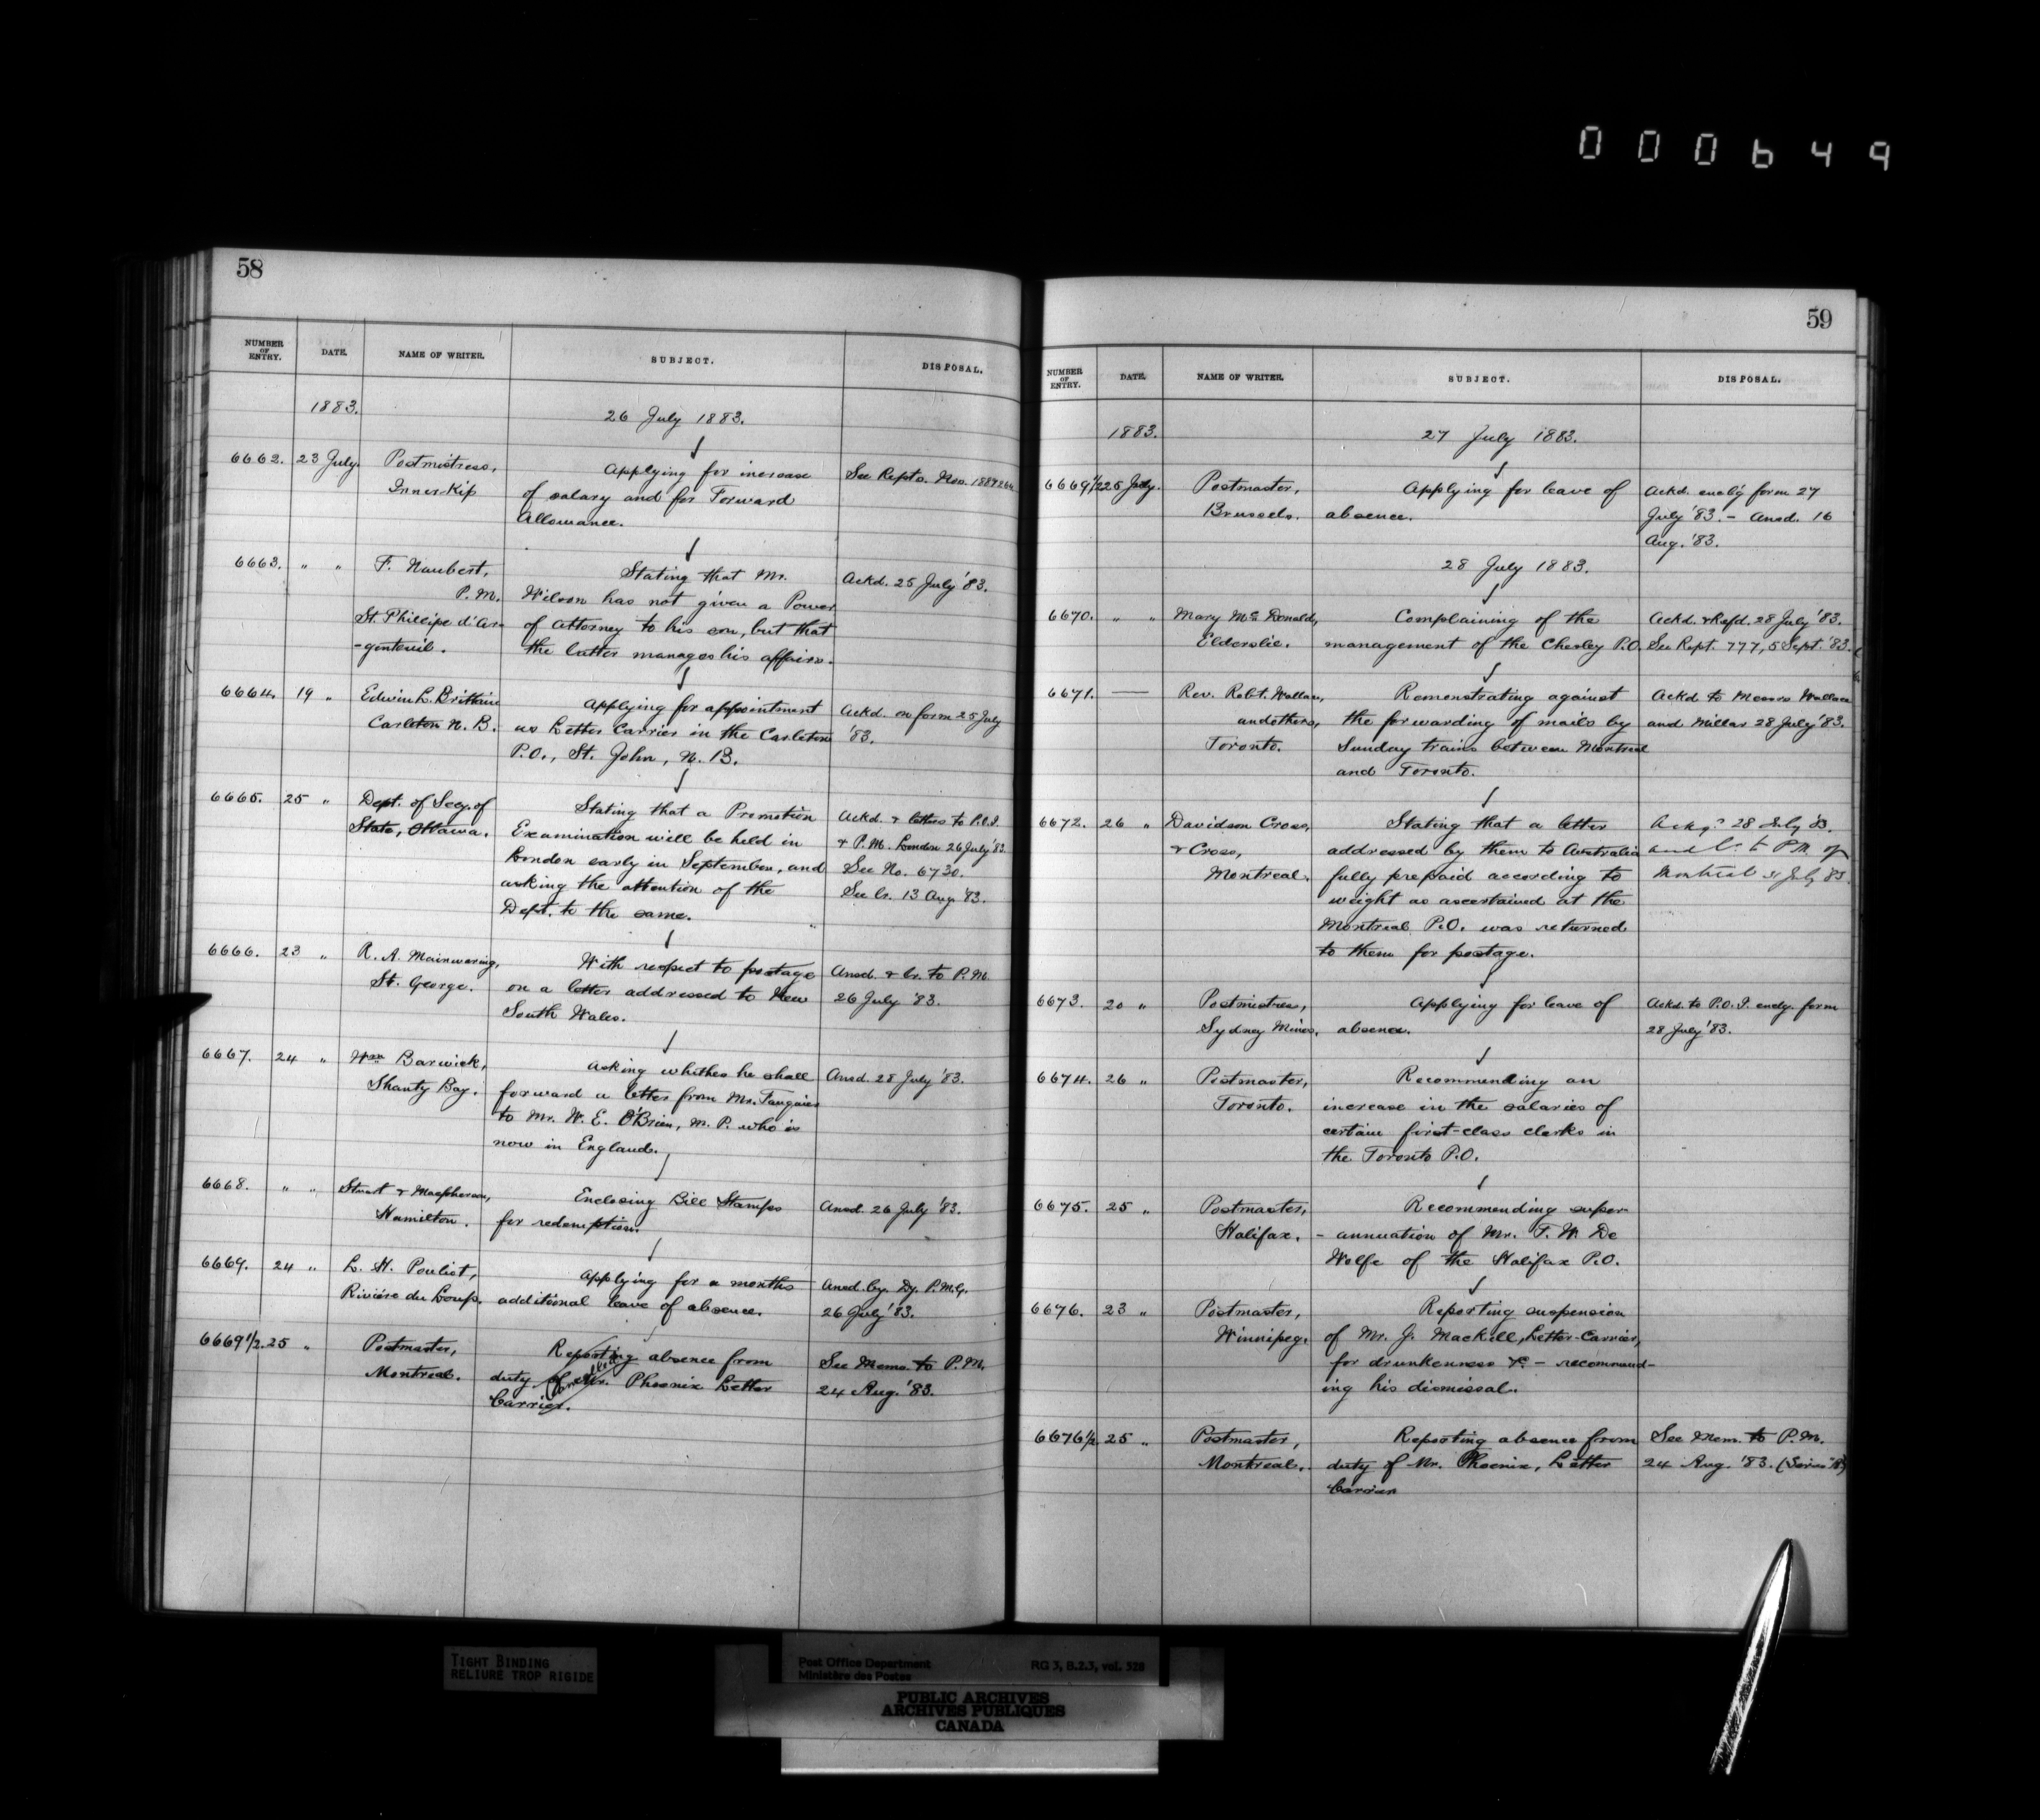 000649
58
NUMBER OF ENTRY. DATE. NAME OF WRITER. SUBJECT. DISPOSAL.
1883. 26 July 1883.
6662. 23 July. Postmistress, Applying for increase See Repts. Nos.
Innerkip of salary and for Forward
Allowance.
6663. " " F. Naubert, Stating that Mr. Ackd. 25 July '83.
P.M. Wilson has not given a Power
St. Phillipe d'Ar- of Attorney to his son, but that
-genteuil. the latter manages his affairs.
6664. 19 " Edwin L. Brittain Applying for appointment Ackd. on form 25 July
Carleton N.B. as Letter Carrier in the Carleton '83.
P.O., St. John, N.B.
6665. 25 " Dept. of Secy. of Stating that a Promotion Ackd. & letters to P.O.I.
State, Ottawa. Examination will be held in & P.M. London 26 July '83.
London early in September, and See No. 6730.
asking the attention of the See lr. 13 Aug '83.
Dept. to the same.
6666. 23 " R. A. Mainwaring, With respect to postage Ansd. & lr. to P.M.
St. George. on a letter addressed to New 26 July '83.
South Wales.
6667. 24 " Wm Barwick, Asking whether he shall Ansd. 28 July '83.
Shanty Bay. forward a letter from Mr. Fauquier
to Mr. W. E. O'Brien, M.P. who is
now in England.
6668. " " Stuart & Macpherson, Enclosing Bill Stamps Ansd. 26 July '83.
Hamilton. for redemption.
6669. 24 " L. H. Pouliot, Applying for a months Ansd. by Dy. P.M.G.
Rivière du Loup. additional leave of absence. 26 July '83.
6669 1/2. 25 " Postmaster, Reporting absence from See Memo. to P.M.
Montreal. duty of Mr. Phoenix Letter 24 Aug. '83.
Cancelled
Carrier.
59
NUMBER OF ENTRY. DATE. NAME OF WRITER. SUBJECT. DISPOSAL.
1883. 27 July 1883.
6669 1/2 25 July. Postmaster, Applying for leave of Ackd. encl'g form 27
Brussels. absence. July '83. - Ansd. 16
Aug. '83.
28 July 1883.
6670. " " Mary Mc Donald, Complaining of the Ackd. & Refd. 28 July '83.
Elderslie. management of the Chesley P.O. See Rept. 777, 5 Sept. '83.
6671. — Rev. Robt. Wallace, Remonstrating against Ackd to Messrs Wallace
and others, the forwarding of mails by and Millar 28 July '83.
Toronto. Sunday trains between Montreal
and Toronto.
6672. 26 " Davidson Cross, Stating that a letter Ackgd 28 July 83.
& Cross, addressed by them to Australia and lr. to P.M. of
Montreal. fully prepaid according to Montreal 31 July 83.
weight as ascertained at the
Montreal P.O. was returned
to them for postage.
6673. 20 " Postmistress, Applying for leave of Ackd. to P.O.I. encly. form
Sydney Mines, absence. 28 July '83.
6674. 26 " Postmaster, Recommending an
Toronto. increase in the salaries of
certain first-class clerks in
the Toronto P.O.
6675. 25 " Postmaster, Recommending super-
Halifax. -annuation of Mr. F. W. De
Wolfe of the Halifax P.O.
6676. 23 " Postmaster, Reporting suspension
Winnipeg. of Mr. J. Mackell, Letter-Carrier,
for drunkenness &c. - recommend-
ing his dismissal.
6676 1/2 25 " Postmaster, Reporting absence from See Mem. to P.M.
Montreal. duty of Mr. Phoenix, Letter 24 Aug. '83.
Carrier
TIGHT BINDING
RELIURE TROP RIGIDE
Post Office Department RG 3, B.2.3, vol. 528
Ministère des Postes
PUBLIC ARCHIVES
ARCHIVES PUBLIQUES
CANADA